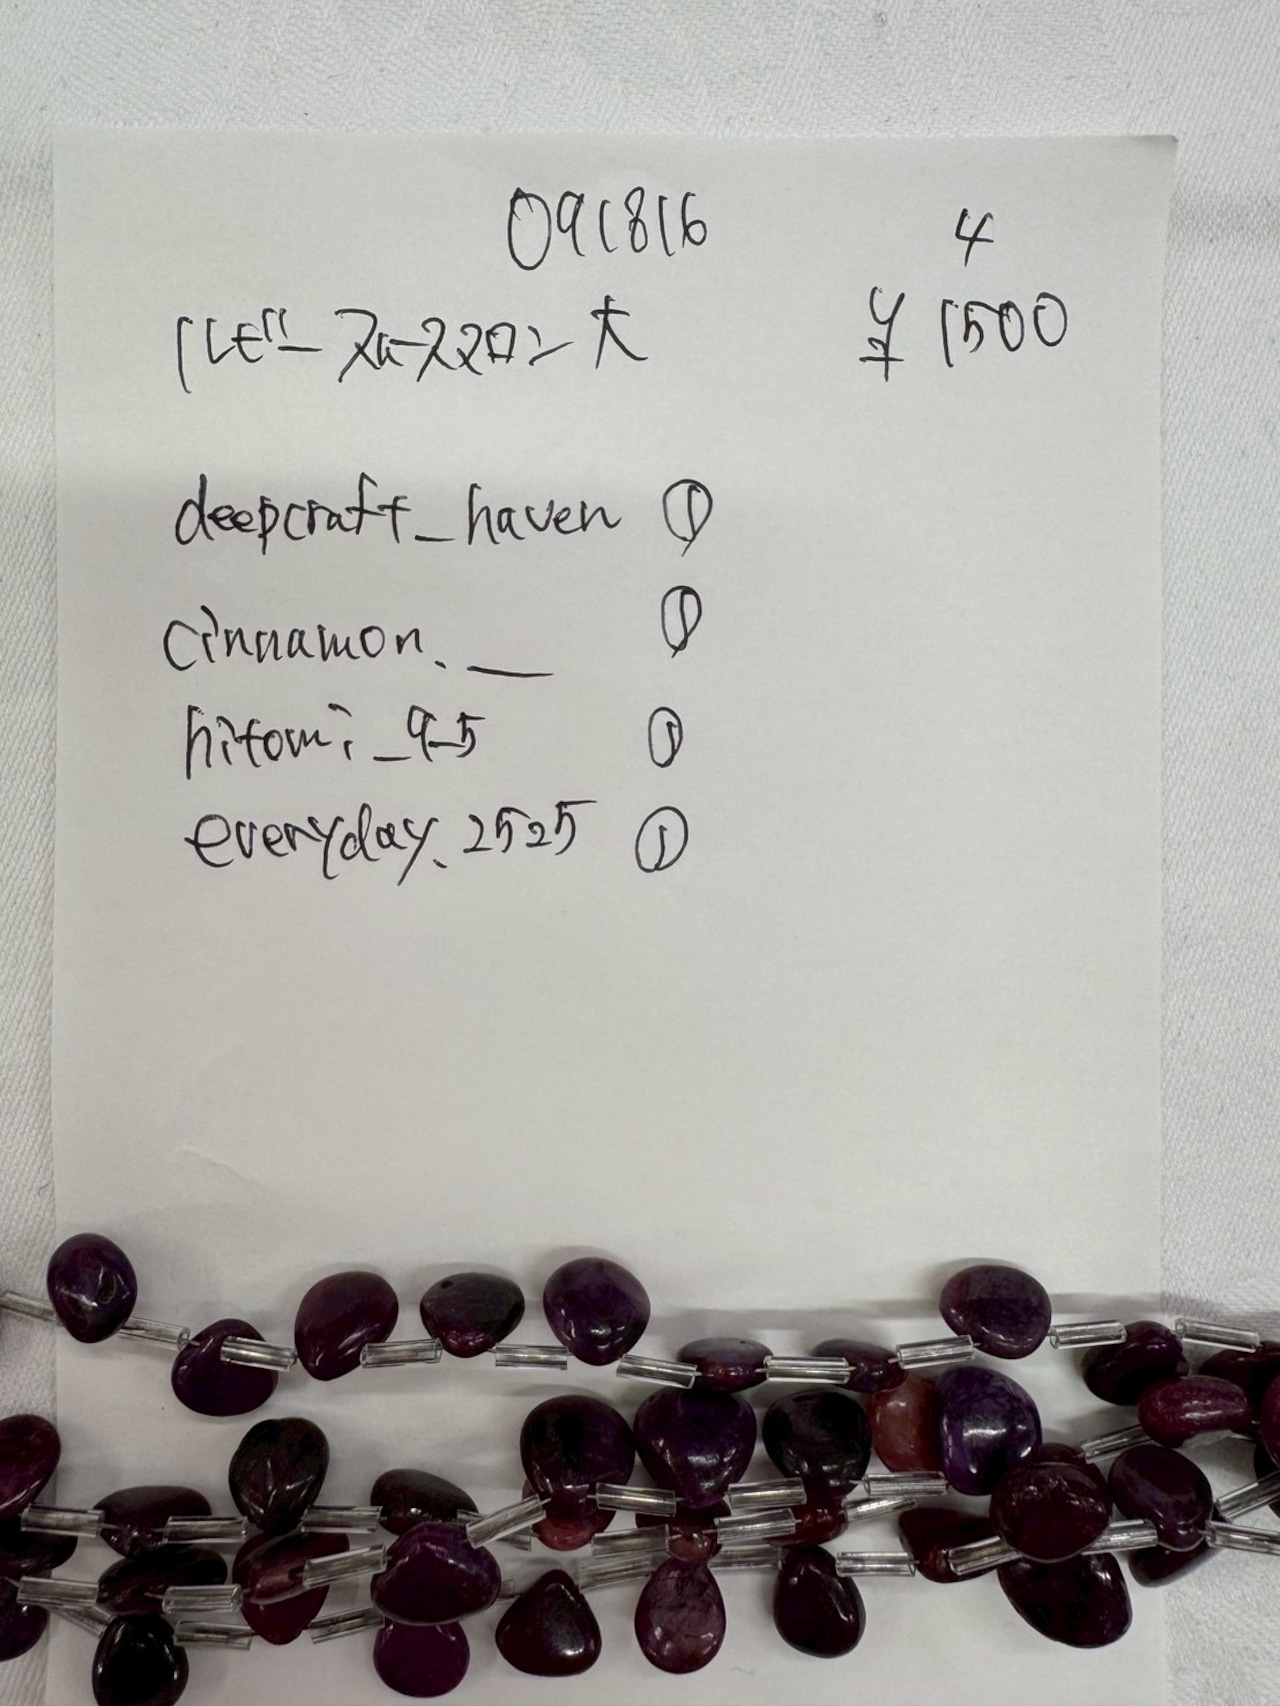 091816
4
ルビー スムースマロン 大
¥1500
deepcraft_haven ①
cinnamon.__ ①
hitomi_9_5 ①
everyday.2525 ①